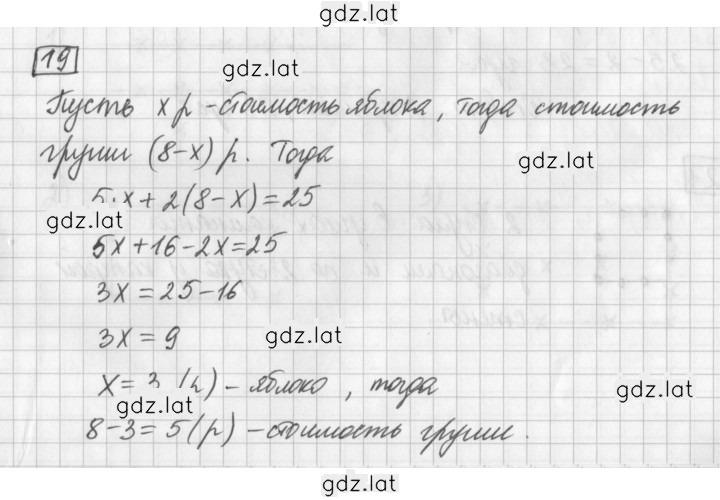 gdz.lat
19
gdz.lat
Пусть х р - стоимость яблока, тогда стоимость
груши (8-х) р. Тогда
gdz.lat
5·х + 2(8-х) = 25
gdz.lat
5х + 16 - 2х = 25
3х = 25 - 16
3х = 9
gdz.lat
х = 3 - яблоко, тогда
gdz.lat
gdz.lat
8 - 3 = 5 (р) - стоимость груши.
gdz.lat